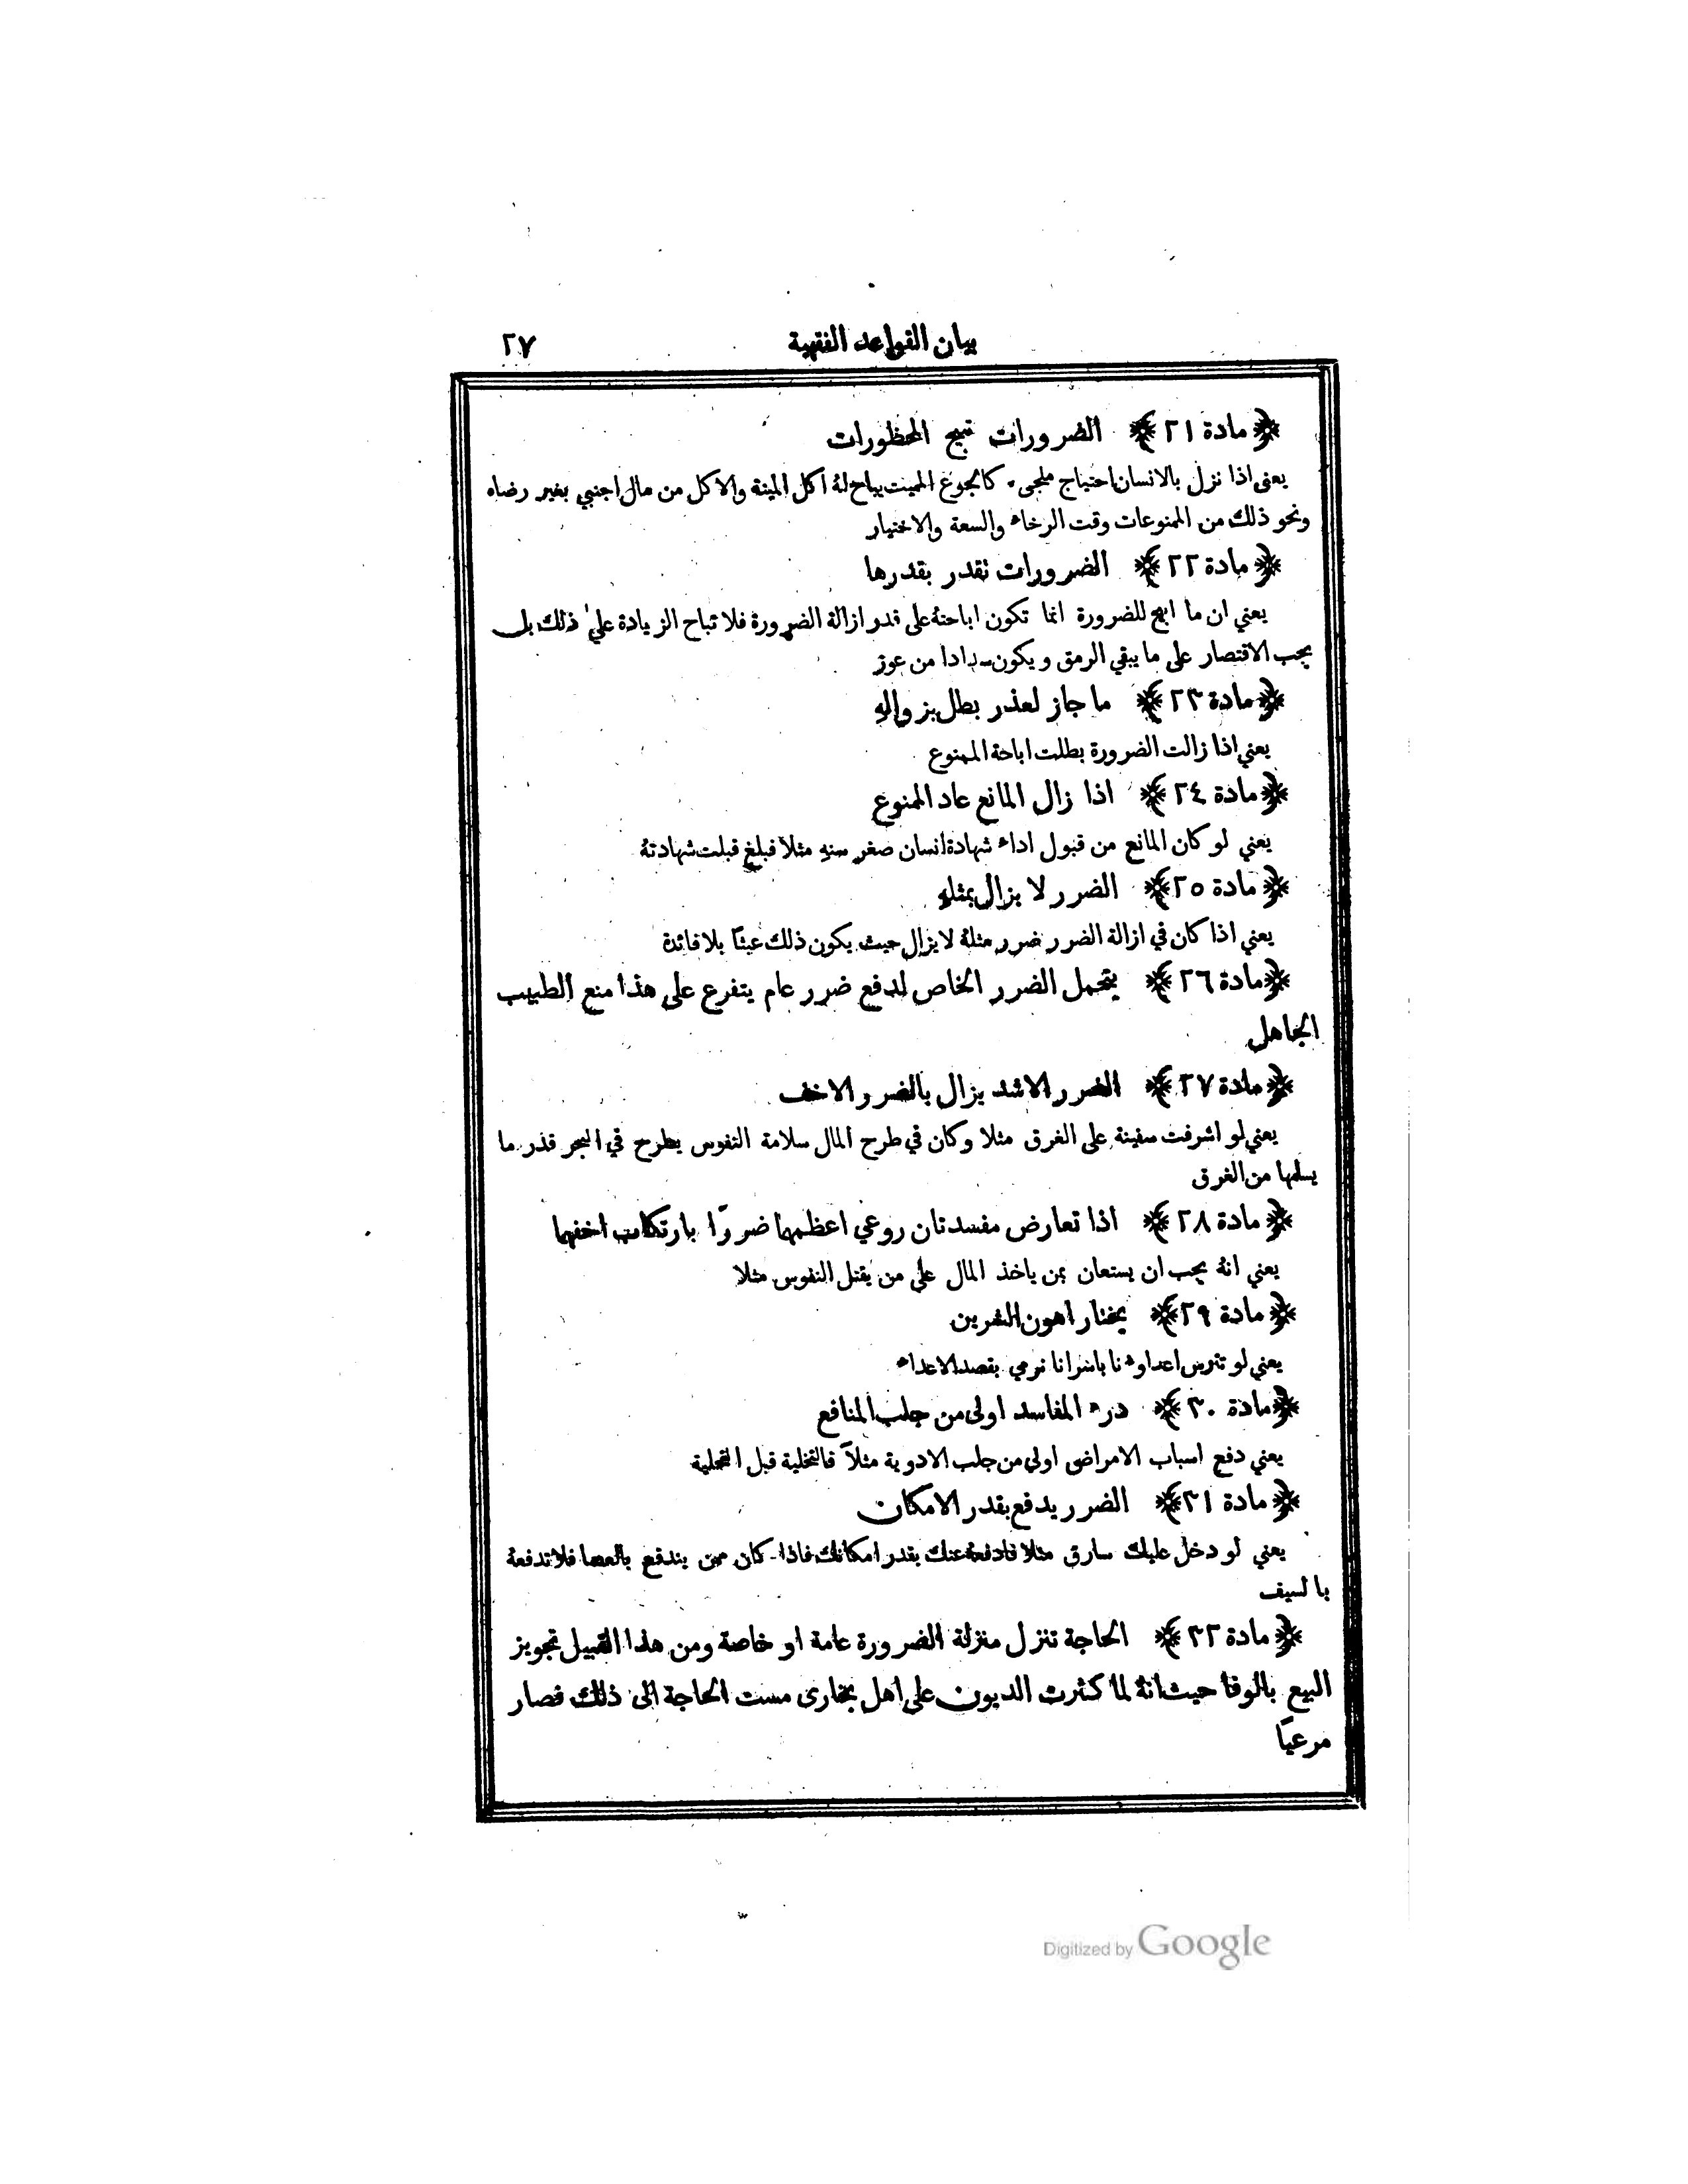 بيان القواعد الفقهية ٢٧
﴿مادة ٢١﴾ الضرورات تبيح المحظورات
يعني اذا نزل بالانسان احتياج ملجىء كالجوع المميت يباح له اكل الميتة والاكل من مال اجنبي بغير رضاه
ونحو ذلك من الممنوعات وقت الرخاء والسعة والاختيار
﴿مادة ٢٢﴾ الضرورات تقدر بقدرها
يعني ان ما ابيح للضرورة انما تكون اباحتهُ على قدر ازالة الضرورة فلا تباح الزيادة على ذلك بل
يجب الاقتصار على ما يبقي الرمق ويكون سدادا من عوز
﴿مادة ٢٣﴾ ما جاز لعذر بطل بزوالهِ
يعني اذا زالت الضرورة بطلت اباحة الممنوع
﴿مادة ٢٤﴾ اذا زال المانع عاد الممنوع
يعني لو كان المانع من قبول اداء شهادة انسان صغر سنهِ مثلاً فبلغ قبلت شهادتهُ
﴿مادة ٢٥﴾ الضرر لا يزال بمثلهِ
يعني اذا كان في ازالة الضرر ضرر مثلهُ لا يزال حيث يكون ذلك عبثاً بلا فائدة
﴿مادة ٢٦﴾ يتحمل الضرر الخاص لدفع ضرر عام يتفرع على هذا منع الطبيب
الجاهل
﴿مادة ٢٧﴾ الضرر الاشد يزال بالضرر الاخف
يعني لو اشرفت سفينة على الغرق مثلا وكان في طرح المال سلامة النفوس يطرح في البحر قدر ما
يسلمها من الغرق
﴿مادة ٢٨﴾ اذا تعارض مفسدتان روعي اعظمهما ضررًا بارتكاب اخفهما
يعني انهُ يجب ان يستعان بمن ياخذ المال على من يقتل النفوس مثلا
﴿مادة ٢٩﴾ يختار اهون الشرين
يعني لو تترس اعداوءنا باسرانا نرمي بقصد الاعداء
﴿مادة ٣٠﴾ درء المفاسد اولى من جلب المنافع
يعني دفع اسباب الامراض اولى من جلب الادوية مثلاً فالتخلية قبل التحلية
﴿مادة ٣١﴾ الضرر يدفع بقدر الامكان
يعني لو دخل عليك سارق مثلا فادفعهُ عنك بقدر امكانك فاذا كان ممن يندفع بالعصا فلا تدفعهُ
بالسيف
﴿مادة ٣٢﴾ الحاجة تنزل منزلة الضرورة عامة او خاصة ومن هذا القبيل تجويز
البيع بالوفا حيث انهُ لما كثرت الديون على اهل بخارى مست الحاجة الى ذلك فصار
مرعيًا
Digitized by Google